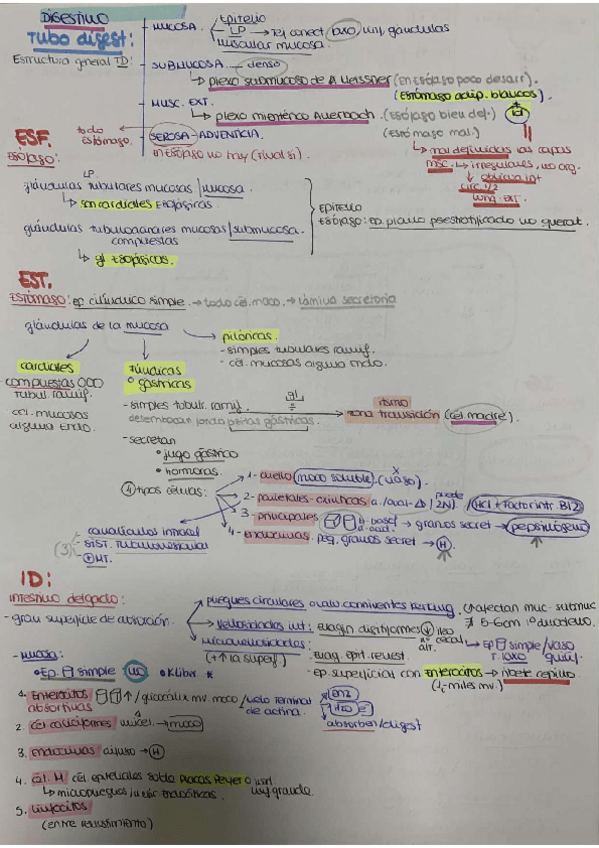 DIGESTIVO
TUBO digest:
Estructura general TD:
- MUCOSA.
Epitelio
LP → Tej. conect laxo, linf, glándulas
Muscular mucosa.
- SUBMUCOSA - denso
↳ plexo submucoso de Meissner (en esófago poco desarr).
(Estómago adip. blancos).
- MUSC. EXT.
↳ plexo mientérico Auerbach. (Esófago bien def.)
todo estómago.
(Estómago mal.)
- SEROSA - ADVENTICIA.
en esófago no hay
↳ mal definidas las capas
musc. ↳ irregulares, no org.
oblicua int
circ. 1/2
long. ext.
ESF.
Esófago:
LP
glándulas tubulares mucosas / mucosa.
↳ son cardiales esofágicas.
glándulas tubuloacinares mucosas / submucosa.
compuestas
↳ gl esofágicas.
Epitelio
esófago: ep. plano pseestratificado no querat.
EST.
Estómago: ep cilíndrico simple. → todo cel. moco. → lámina secretoria
glándulas de la mucosa
→ pilóricas.
- simples tubulares ramif.
- cél. mucosas alguna endo.
cardiales
compuestas
tubul. ramif.
cel. mucosas
alguna endo.
fúndicas
o gástricas
- simples tubulr. ramif.
desembocan fondo fositas gástricas.
gl
istmo
zona transición (cél madre).
- secretan
• jugo gástrico
• hormonas.
4 tipos células:
1 - cuello (moco soluble).
2 - parietales - oxínticas
(HCl + factor intr. B12)
3 - principales
→ granos secret → pepsinógeno
4 - endocrinas. peq. granos secret → H
canalículos intracel
(3) SIST. tubulovesicular
+ MT.
ID:
intestino delgado:
- gran superficie de absorción.
pliegues circulares
afectan muc-submuc
5-6cm duodeno.
vellosidades int: evagin digitiformes
microvellosidades:
(+ ↑ la superf)
evag. epit. revest.
→ Ep simple / vaso
- mucosa:
• Ep. simple
- ep. superficial con Enterocitos → ribete cepillo
(miles mv.)
1. Enterocitos ↑ / glucocálix mv. moco / velo terminal
absortivas
de actina.
enz
absorben/digest
2. cél caliciformes unicel. → moco
3. endocrinas → H
4. cél. M cél epiteliales sobre placas Peyer
↳ micropliegues
grande
5. linfocitos
(entre revestimiento)